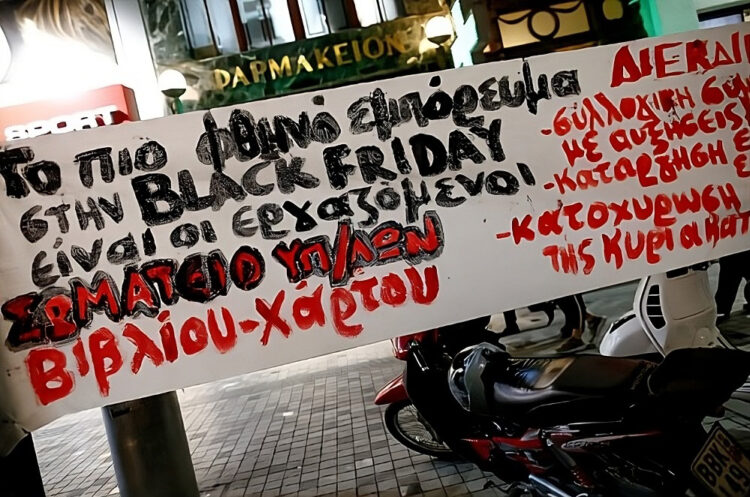 ΦΑΡΜΑΚΕΙΟΝ
SPORT
Το πιο φθηνό εμπόρευμα
στην BLACK FRIDAY
είναι οι εργαζόμενοι
ΣΩΜΑΤΕΙΟ ΥΠ/ΛΩΝ
Βιβλίου-χάρτου
ΔΙΕΚΔΙ
-συλλογική συ
με αυξήσεις
-κατάργηση
-κατοχύρωση
της κυριακάτ
BBK